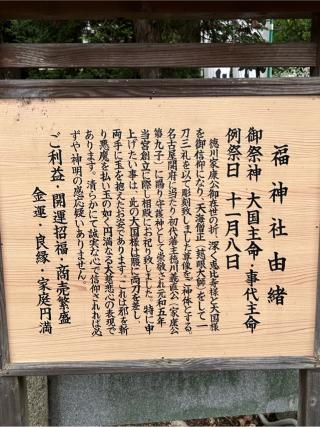 福神社由緒
御祭神 大国主命・事代主命
例祭日 十一月八日
徳川家康公御在世の折、深く恵比寿様と大国様
を御信仰になり、天海僧正(慈眼大師)をして一
刀三礼を以て彫刻致しました尊像を御神体とする。
名古屋開府に当たり初代藩主徳川義直公(家康公
第九子)に賜り守護神として崇敬され元和五年
当宮創立に際し相殿にお祀り致しました。特に申
上げたい事は、此の大国様は腰に両刀を差し、
両手に玉を抱えたお姿であります。これは邪を斬
り悪魔を払い玉の如く円満なる大慈悲心の表現で
あります。清らかにて誠実な心で信仰されれば必
ずや神明の感応疑いありません。
ご利益・開運招福・商売繁盛
金運・良縁・家庭円満